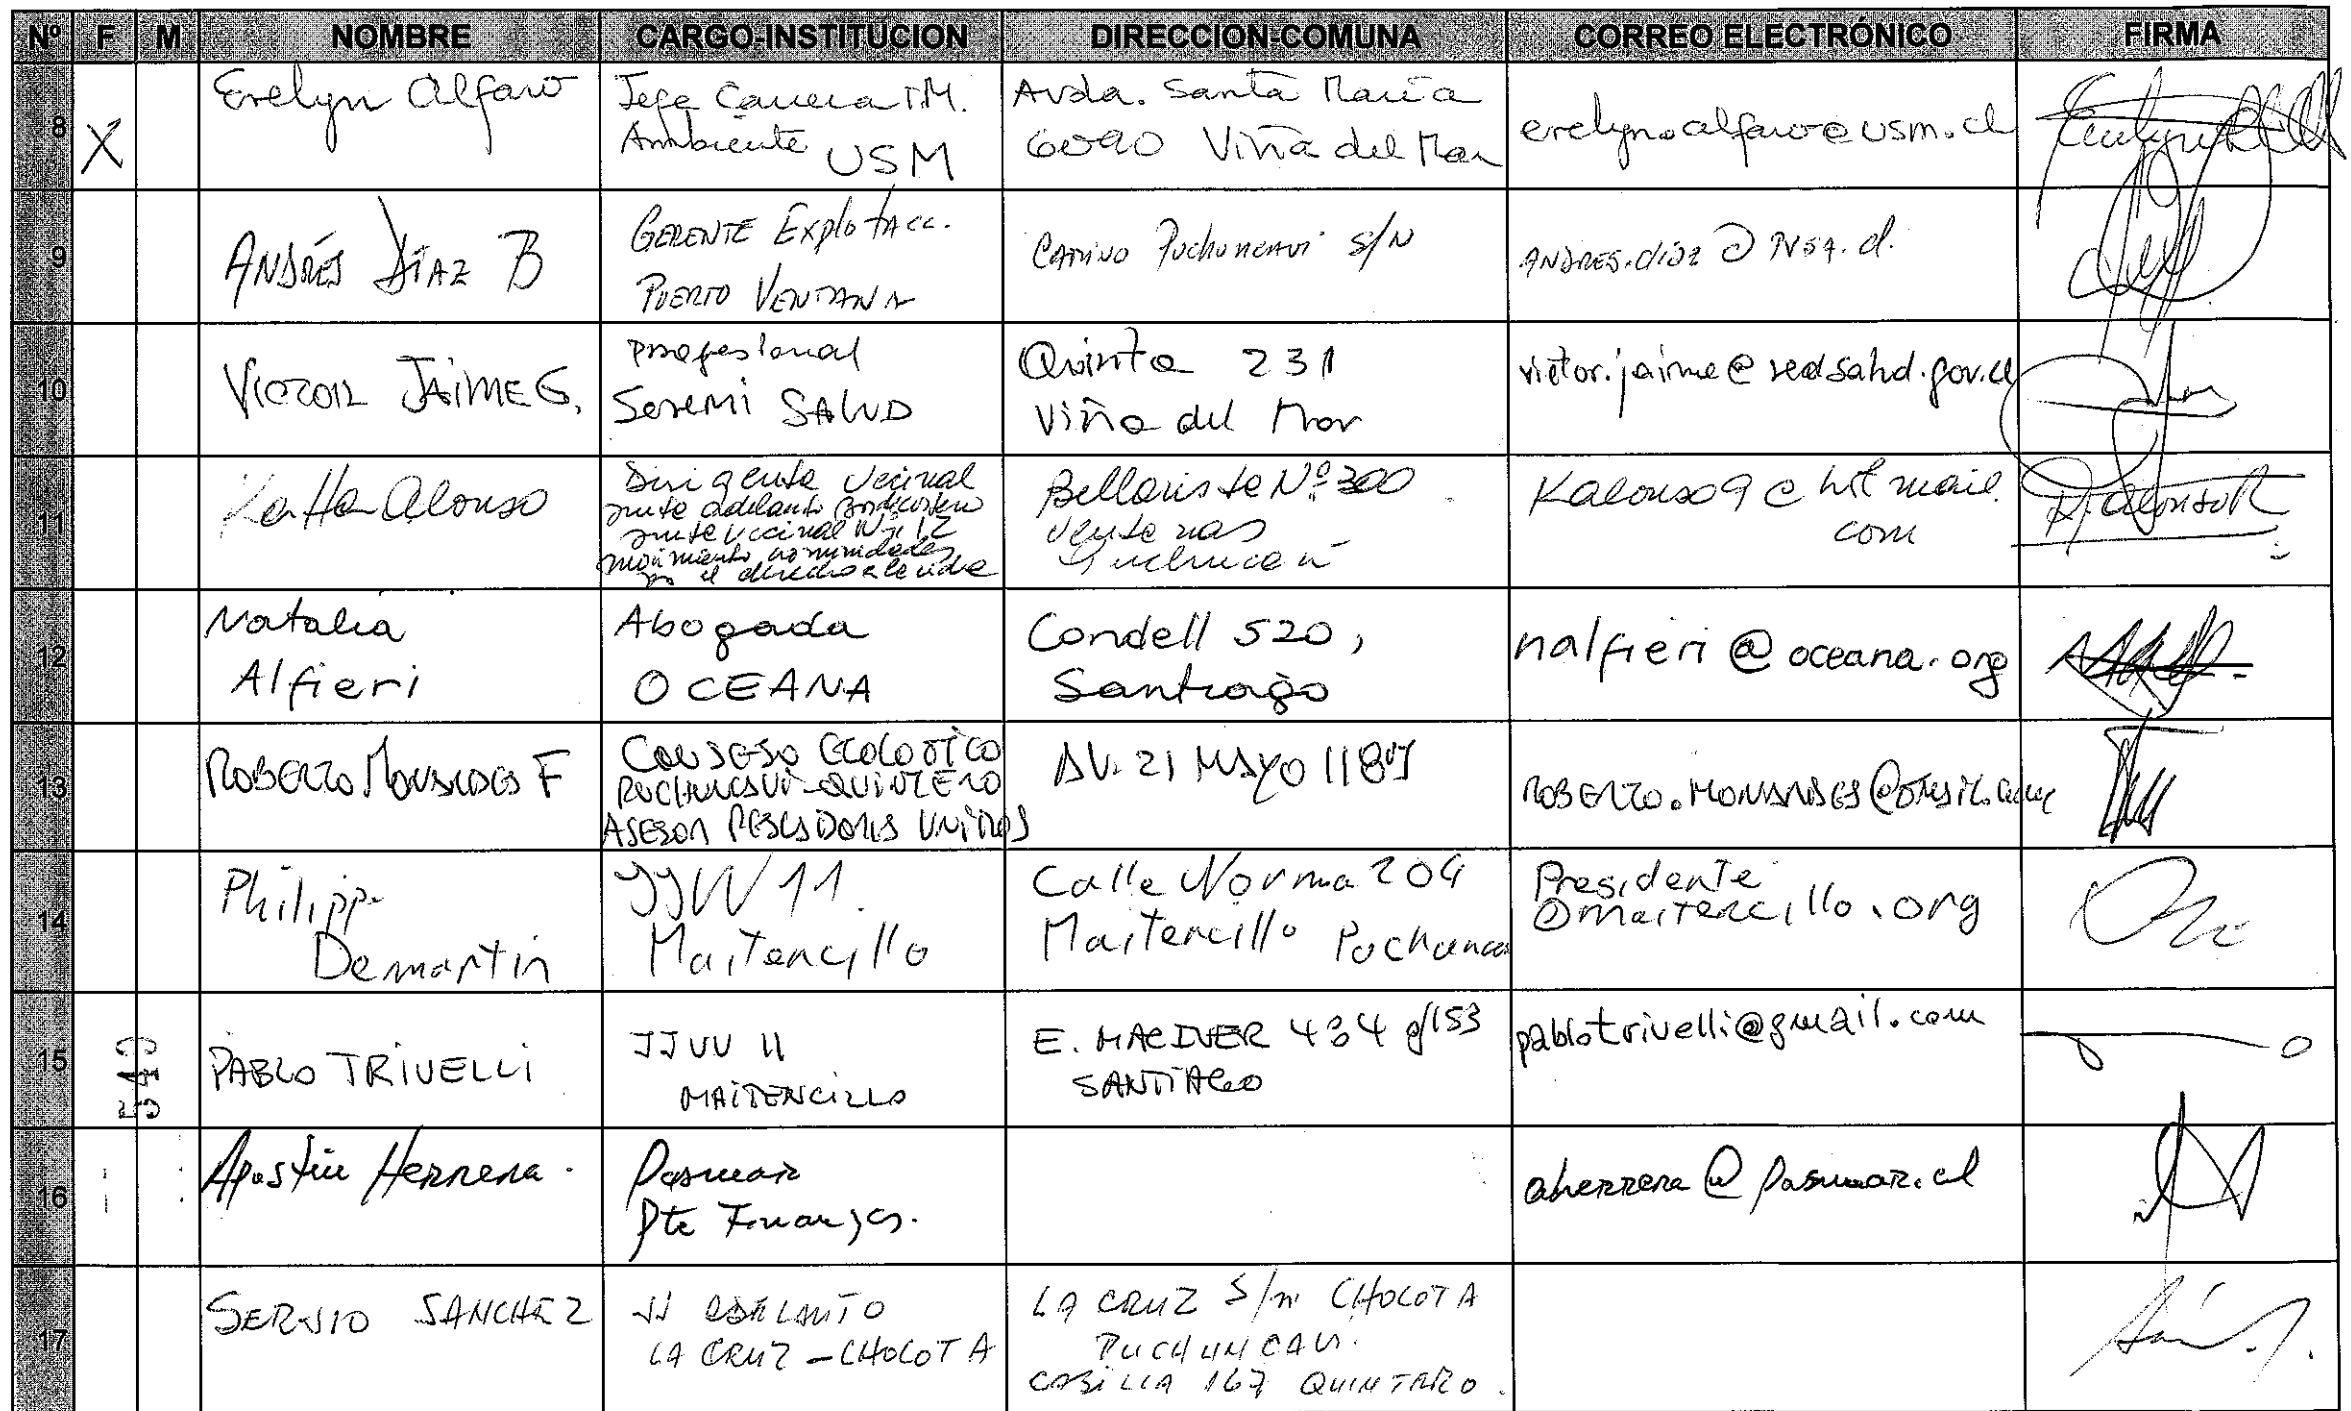 Nº F M NOMBRE CARGO-INSTITUCION DIRECCION-COMUNA CORREO ELECTRÓNICO FIRMA
8 X Evelyn Alfaro
Jefe Carrera I.M.
Ambiente USM
Avda. Santa María
6090 Viña del Mar
evelyn.alfaro@usm.cl
9 ANDRÉS DÍAZ B
GERENTE Explotacc.
PUERTO VENTANA
CAMINO Puchuncavi S/N
ANDRES.diaz @ PVSA.cl.
10 VICTOR JAIME G.
profesional
Seremi SALUD
Quinta 231
Viña del Mar
victor.jaime@redsalud.gov.cl
11 Katta Alonso
Dirigente Vecinal
junta adelanto
junta vecinal Nº 12
movimiento comunidades
por el derecho a la vida
Bellavista Nº 300
Ventanas
Puchuncaví
Kalonso9@hotmail.
com
12 Natalia
Alfieri
Abogada
OCEANA
Condell 520,
Santiago
nalfieri@oceana.org
13 ROBERTO MONARDES F
CONSEJO ECOLOGICO
PUCHUNCAVI-QUINTERO
ASESOR PESCADORES UNIDOS
AV. 21 MAYO 1187
ROBERTO.MONARDES@GMAIL.com
14 Philipp
Demartin
JJVV 11.
Maitencillo
Calle Norma 204
Maitencillo Puchunca
Presidente
@maitencillo.org
15 543 PABLO TRIVELLI
JJVV 11
MAITENCILLO
E. MACIVER 434 /153
SANTIAGO
pablotrivelli@gmail.com
16 Agustín Herrera.
Pasmar
Pte Finanzas.
aherrera@pasmar.cl
17 SERJIO SANCHEZ
JJ ADELANTO
LA CRUZ - CHOCOTA
LA CRUZ S/n CHOCOTA
PUCHUNCAVI.
CASILLA 167 QUINTERO.